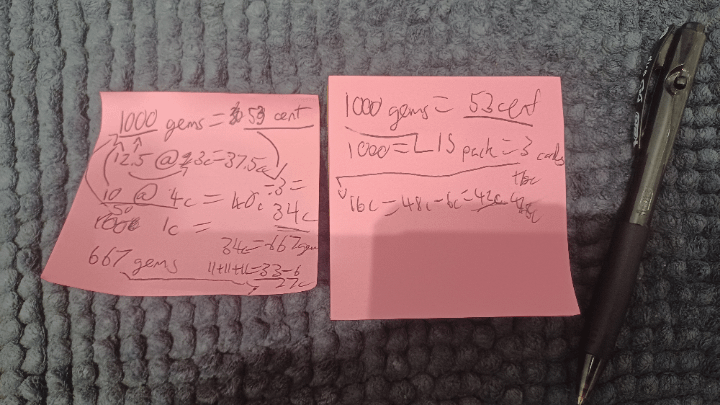 1000 gems = 53 cent
12.5 @ 3c = 37.5c
10 @ 4c = 40c ÷3 =
34c
50 1c =
34c = 667 gem
667 gems 11+11+11=33-6
27c
1000 gems = 53 cent
1000 = L15 pack = 3 cards
16c = 48c - 6c = 42c